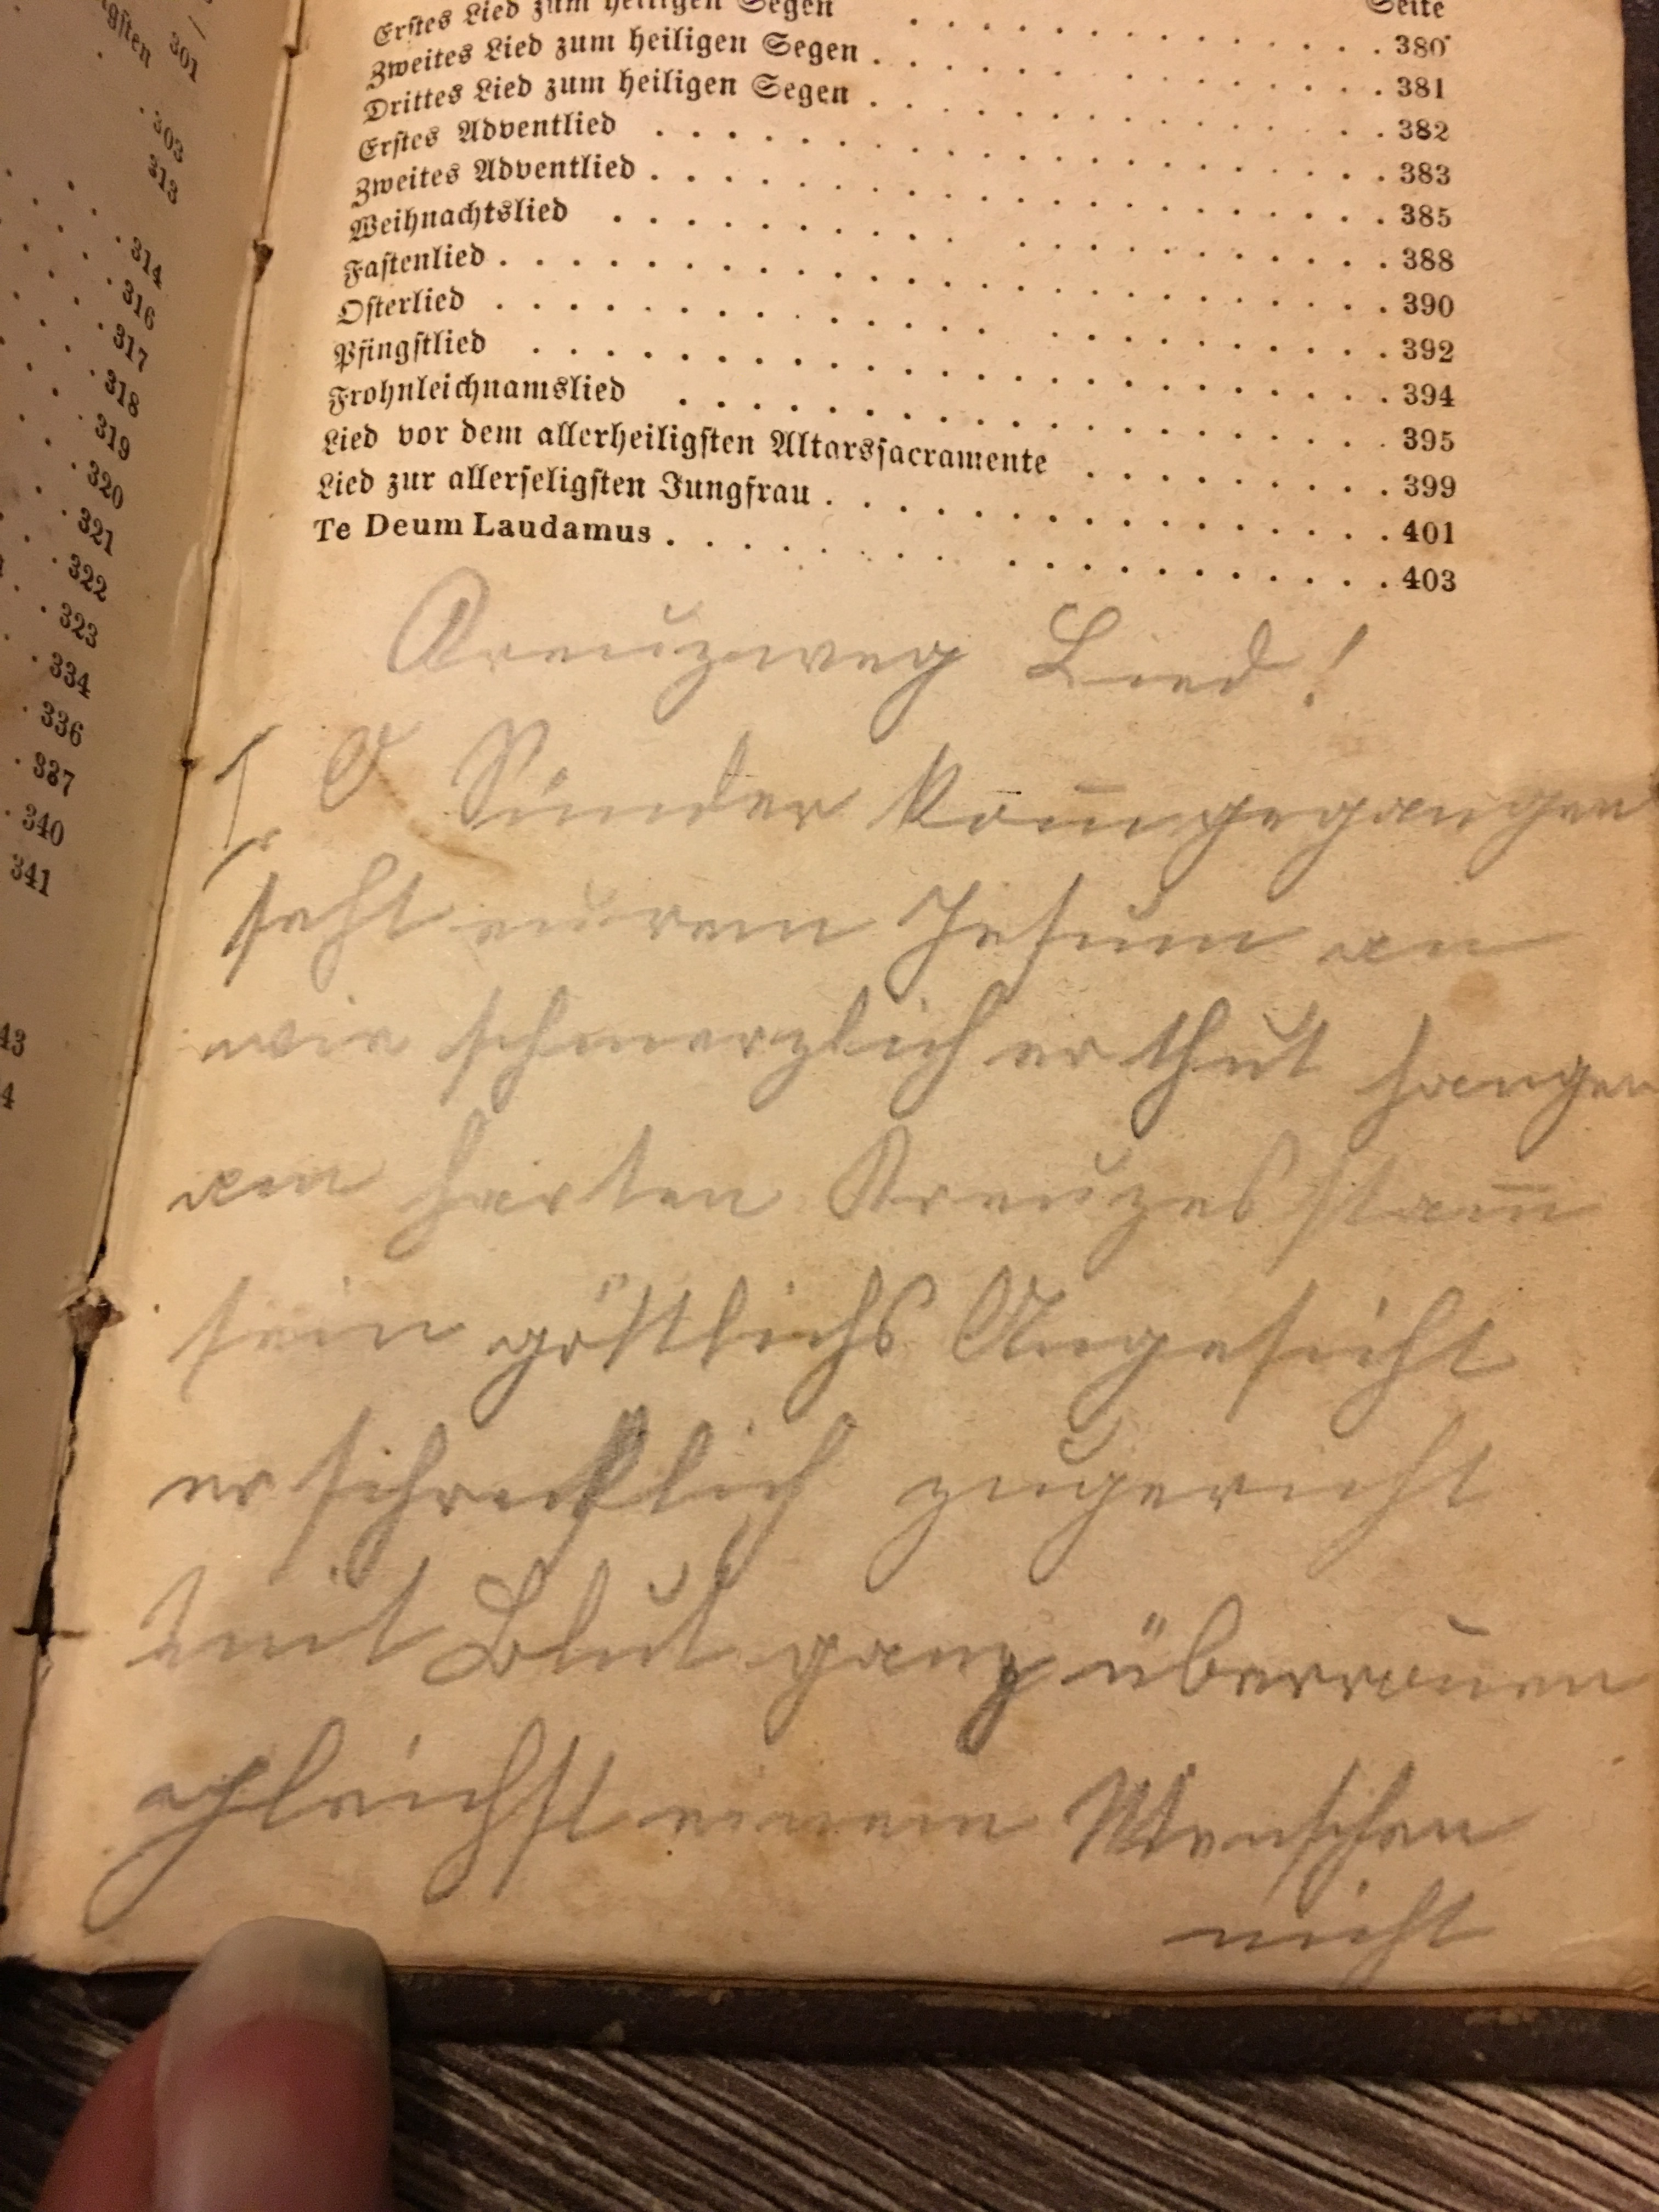 gsten
301
303
313
314
316
317
318
319
320
321
322
323
334
336
337
340
341
43
4
Seite
Erstes Lied zum heiligen Segen . . . . . . . . . . . . 380
Zweites Lied zum heiligen Segen . . . . . . . . . . . . 381
Drittes Lied zum heiligen Segen . . . . . . . . . . . . 382
Erstes Adventlied . . . . . . . . . . . . 383
Zweites Adventlied . . . . . . . . . . . . 385
Weihnachtslied . . . . . . . . . . . . 388
Fastenlied . . . . . . . . . . . . 390
Osterlied . . . . . . . . . . . . 392
Pfingstlied . . . . . . . . . . . . 394
Frohnleichnamslied . . . . . . . . . . . . 395
Lied vor dem allerheiligsten Altarssacramente . . . . . . . . . 399
Lied zur allerseligsten Jungfrau . . . . . . . . . . . . 401
Te Deum Laudamus . . . . . . . . . . . . 403
Kreuzweg Lied!
O Sünder kom̅ gegangen
seht eurem Jesum an
wie schmerzlich er thut hangen
am harten Kreuzes stam̅
sein göttlichs Angesicht
erschrecklich zugericht
mit Blut ganz überronen
gleichst einem Menschen
nicht